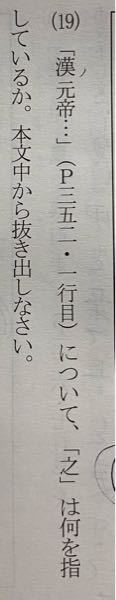 (19) 「漢ノ元帝…」(P三五二・一行目)について、「之」は何を指
しているか。本文中から抜き出しなさい。